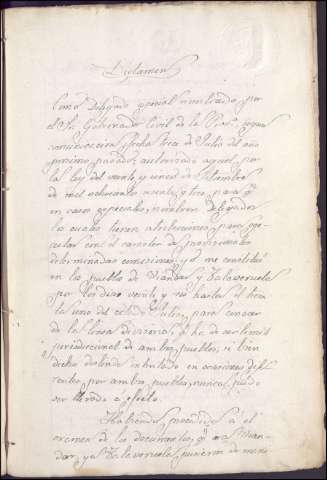 Dictamen
Como Delegado especial nombrado por
el Sr. Gobernador Civil de la Prov.
comunicacion fecha trece de Julio del año
proximo pasado, autorizado aquel por
la ley del veinte y cinco de Setiembre
de mil ochocientos sesenta y tres, para q.
en casos especiales, nombren Delegados
los cuales tienen atribuciones para
con el caracter de provisionales
determinadas comisiones; y
en los pueblos de Viandar y Talaveruela
por los dias veinte y
ta uno del citado Julio, para conocer
de la linea divisoria, q. ha de ser limite
jurisdiccional de ambos pueblos, si bien
dicho deslinde intentado en ocasiones
por ambos pueblos, nunca pudo
ser llevado a efecto.
Habiendo procedido á el
examen de los documentos, q. era Vian-
dar, y a Talaveruela, pusieron de mani-